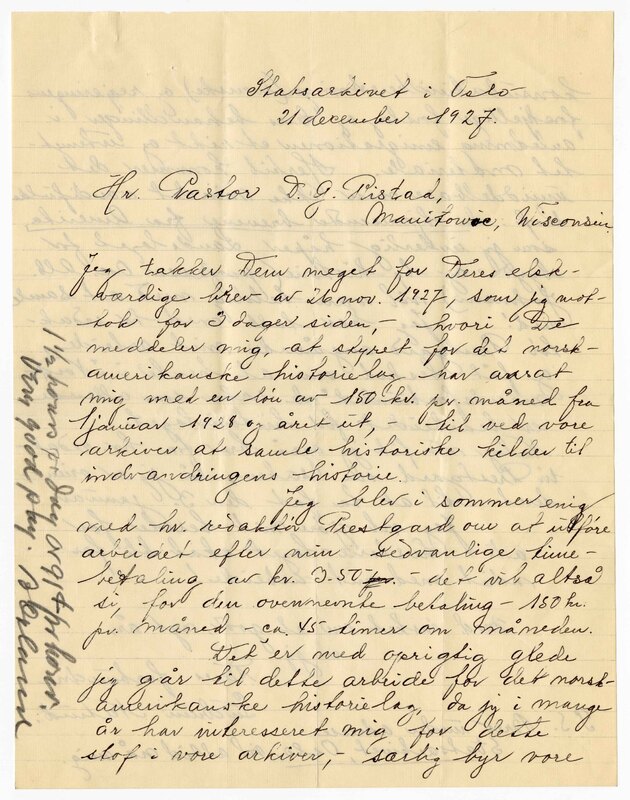 Statsarkivet i Oslo
21 december 1927.
Hr. Pastor D. G. Ristad,
Manitowoc, Wisconsin.
Jeg takker Dem meget for Deres elsk-
værdige brev av 26 nov. 1927, som jeg mot-
tok for 3 dager siden, - hvori De
meddeler mig, at styret for det norsk-
amerikanske historielag har ansat
mig med en løn av 150 kr. pr. måned fra
1 januar 1928 og året ut, - til ved vore
arkiver at samle historiske kilder til
indvandringens historie.
Jeg blev i sommer enig
med hr. redaktør Prestgard om at utføre
arbeidet efter min sedvanlige time-
betaling av kr. 3.50 - det vil altså
si, for den ovennevnte betaling - 150 kr.
pr. måned - ca. 45 timer om måneden.
Det er med oprigtig glede
jeg går til dette arbeide for det norsk-
amerikanske historielag, da jeg i mange
år har interesseret mig for dette
stof i vore arkiver, - særlig byr vore
1 1/2 hours pr day 0.91 pr hour.
Very good pay.